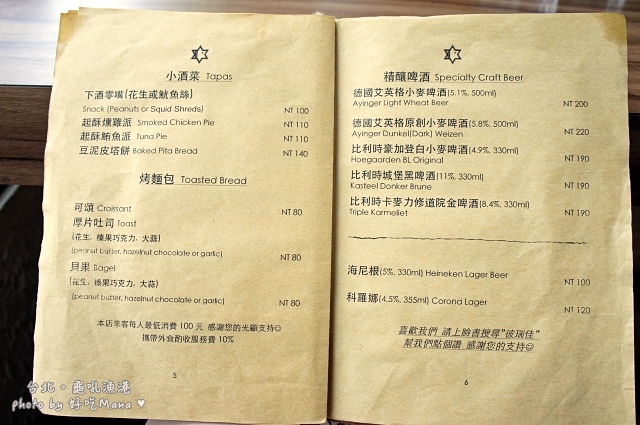 小酒菜 Tapas
下酒零嘴(花生或魷魚絲)
Snack (Peanuts or Squid Shreds) NT 100
起酥燻雞派 Smoked Chicken Pie NT 110
起酥鮪魚派 Tuna Pie NT 110
豆泥皮塔餅 Baked Pita Bread NT 140
烤麵包 Toasted Bread
可頌 Croissant NT 80
厚片吐司 Toast
(花生, 榛果巧克力, 大蒜)
(peanut butter, hazelnut chocolate or garlic) NT 80
貝果 Bagel
(花生, 榛果巧克力, 大蒜)
(peanut butter, hazelnut chocolate or garlic) NT 80
本店來客每人最低消費 100 元 感謝您的光顧支持☺
攜帶外食酌收服務費 10%
5
精釀啤酒 Specialty Craft Beer
德國艾英格小麥啤酒(5.1%, 500ml)
Ayinger Light Wheat Beer NT 200
德國艾英格原創小麥啤酒(5.8%, 500ml)
Ayinger Dunkel(Dark) Weizen NT 220
比利時豪加登白小麥啤酒(4.9%, 330ml)
Hoegaarden BL Original NT 190
比利時城堡黑啤酒(11%, 330ml)
Kasteel Donker Brune NT 190
比利時卡麥力修道院金啤酒(8.4%, 330ml)
Triple Karmeliet NT 190
海尼根(5%, 330ml) Heineken Lager Beer NT 100
科羅娜(4.5%, 355ml) Corona Lager NT 120
喜歡我們 請上臉書搜尋"彼瑞佳"
幫我們點個讚 感謝您的支持☺
6
台北。龜吼漁港
photo by 好吃Mana ♥